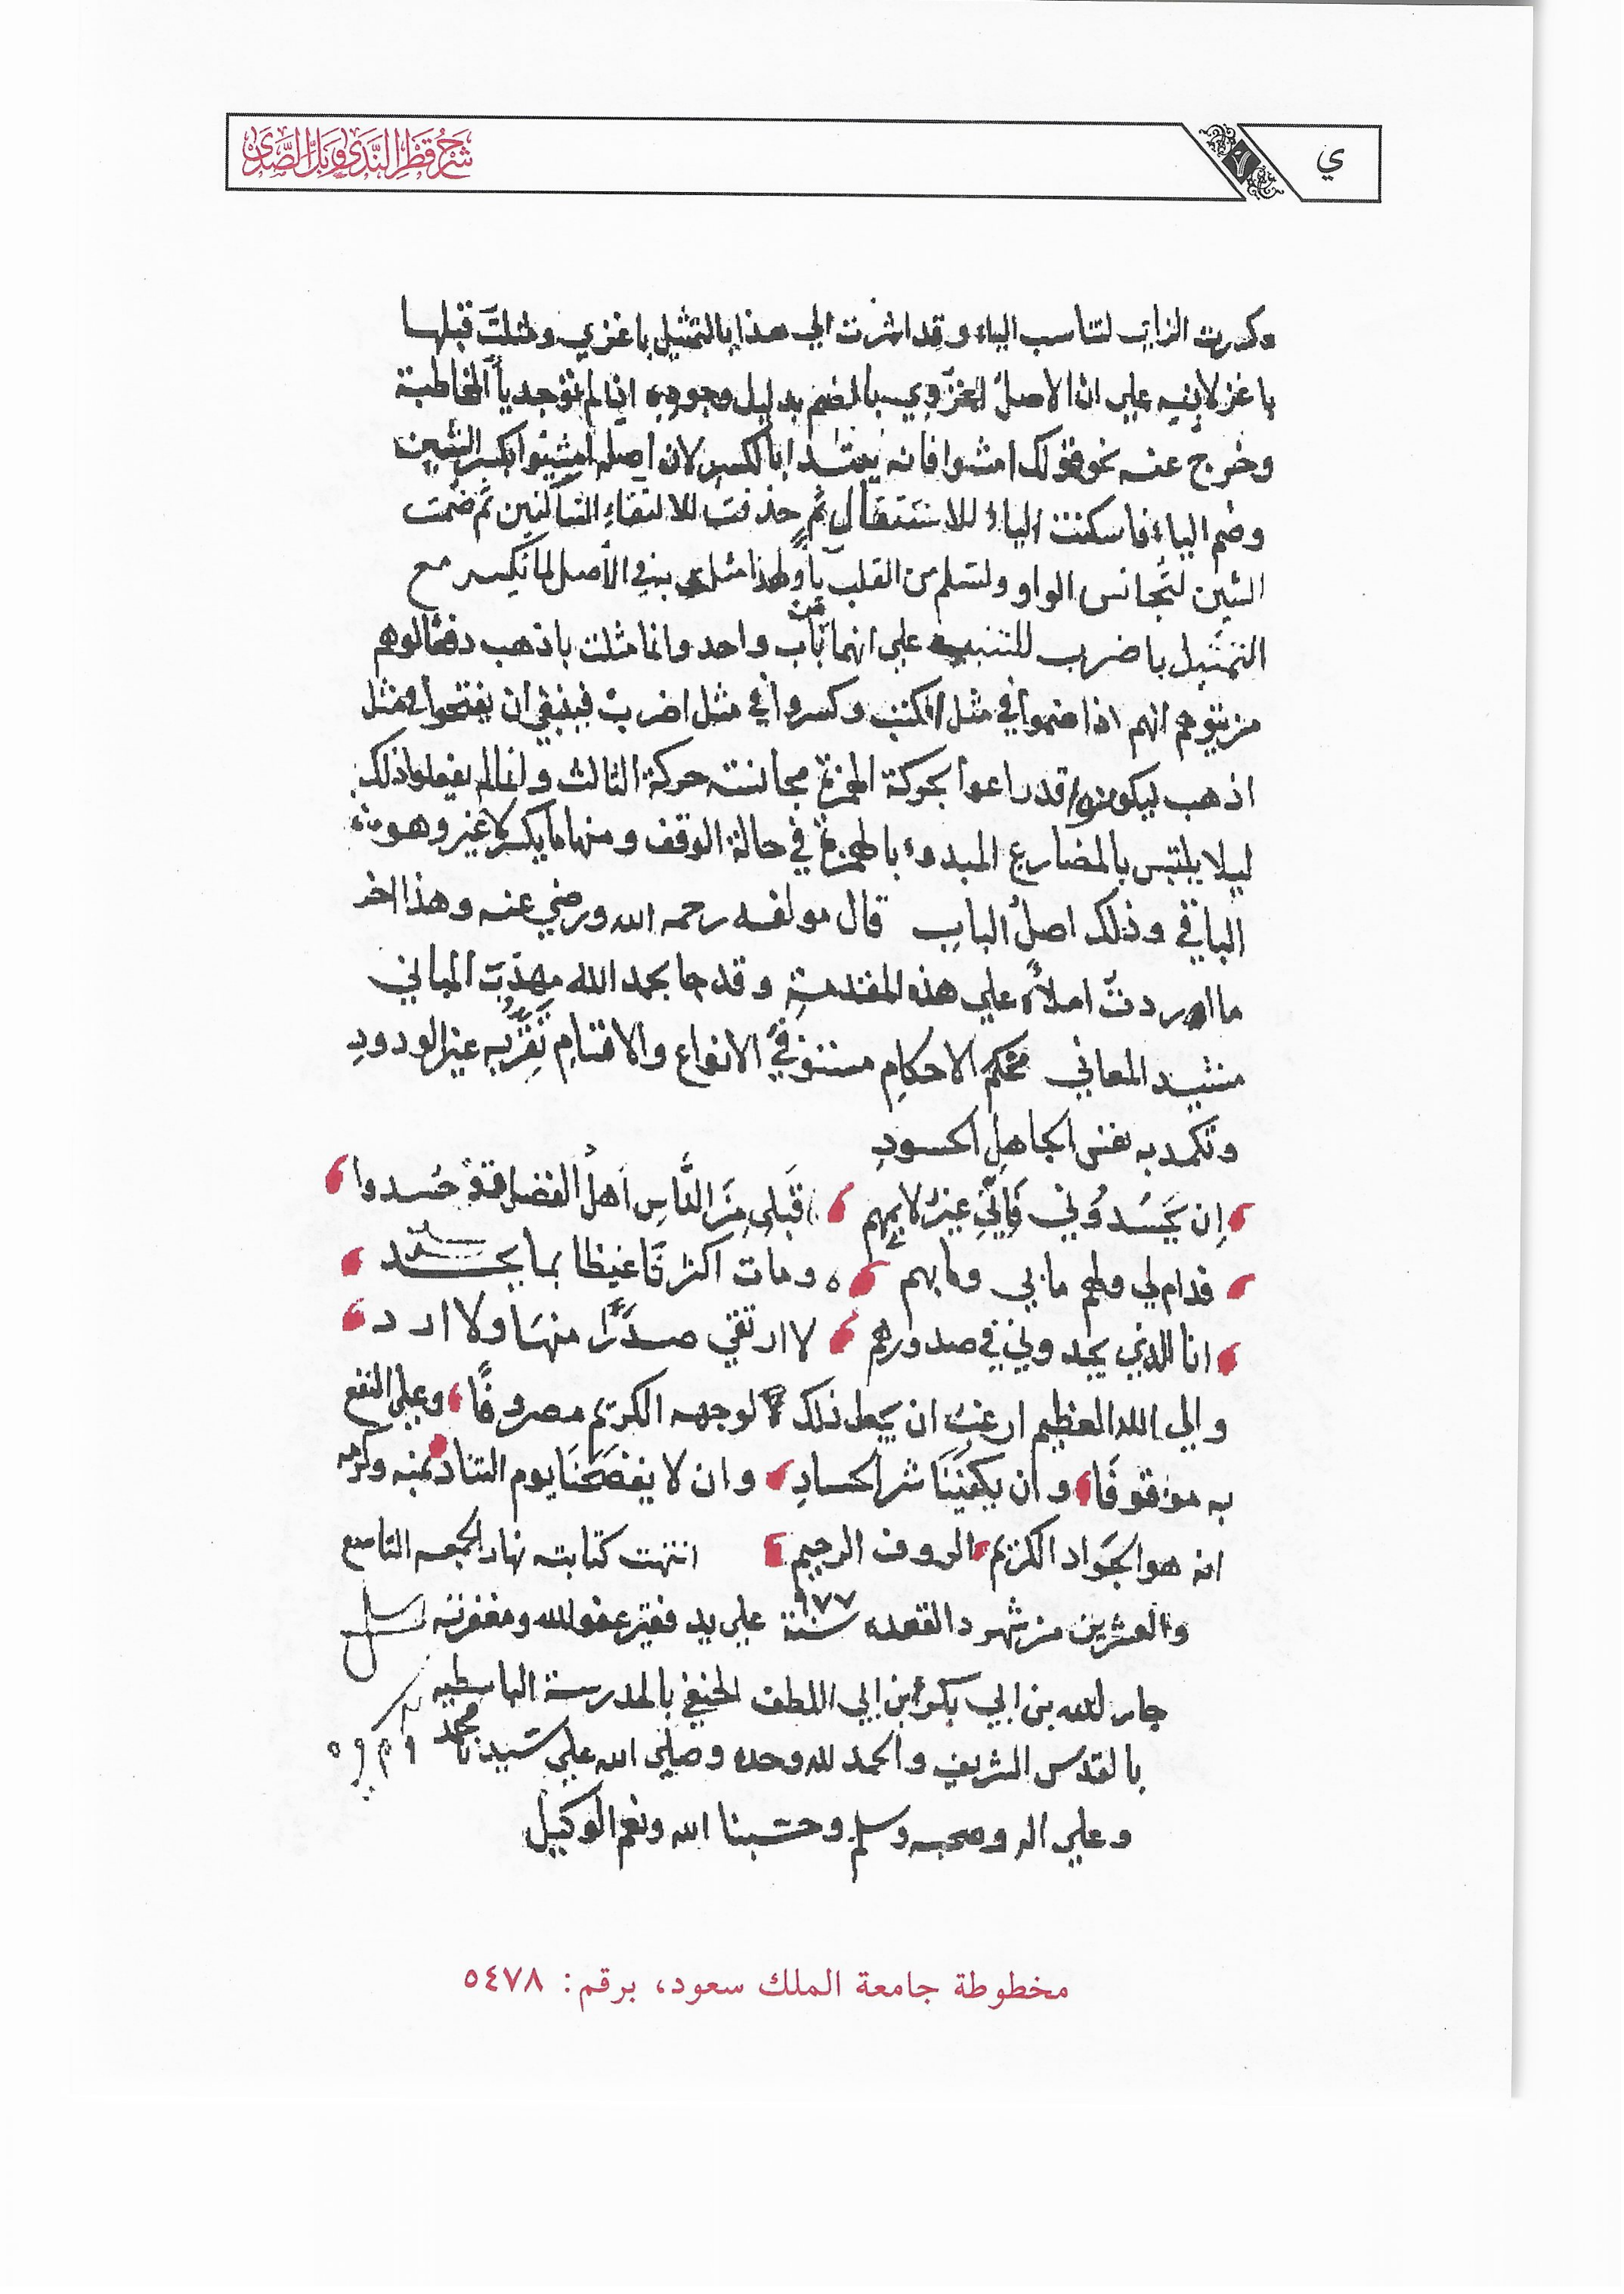 ي
شرح قطر الندى وبل الصدى
وكسرت الزاي لتناسب الياء وقد اشرت الي هذا بالتمثيل باغزي ومثلت قبلها
باغز لانبه علي ان الاصل اغزوي بالضم بدليل وجوده اذا لم توجد ياء المخاطبة
وخرج عنه نحو قولك امشوا فانه يبتدا بالكسر لان اصله امشيوا بكسر الشين
وضم الياء فاسكنت الياء للاستثقال ثم حذفت للالتقاء الساكنين ثم ضمت
الشين لتجانس الواو ولتسلم من القلب ياء ولهذا مثلت به في الأصل لما يكسر مع
التمثيل باضرب للتنبيه علي انهما من باب واحد وانما مثلت باذهب دفعا لوهم
من يتوهم انهم اذا ضموا في مثل اكتب وكسروا في مثل اضرب فينبغي ان يفتحوا في مثل
اذهب ليكونوا قد راعوا بحركة الهمزة مجانسة حركة الثالث وانما لم يفعلوا ذلك
ليلا يلتبس بالمضارع المبدوء بالهمزة في حالة الوقف ومنها ما يكسر لا غير وهو
الباقي وذلك اصل الباب قال مولفه رحمه الله ورضي عنه وهذا اخر
ما اردت املاءه علي هذه المقدمة وقد جا بحمد الله مهذب المباني
مشيد المعاني محكم الاحكام مستوفي الانواع والاقسام تقر به عين الودود
وتكمد به نفس الجاهل الحسود
إن يحسدوني فإني غير لايمهم قبلي من الناس أهل الفضل قد حسدوا
فدام لي ولهم ما بي وما بهم ومات اكثرنا غيظا بما يجد
انا الذي يجدوني في صدورهم لا ارتقي صدرا منها ولا ارد
والي الله العظيم ارغب ان يجعل ذلك لوجهه الكريم مصروفا وعلي النفع
به موقوفا وان يكفينا شر الحساد وان لا يفضحنا يوم التناد بمنه وكرمه
انه هو الجواد الكريم الروف الرحيم انتهت كتابته نهار الجمعه التاسع
والعشرين من شهر ذ القعده سنة ٩٧٧ علي يد فقير عفو الله ومغفرته
جار الله بن ابي بكر ابن ابي اللطف الحنفي بالمدرسة الباسطيه
بالقدس الشريف والحمد لله وحده وصلى الله علي سيدنا محمد
وعلي اله وصحبه وسلم وحسبنا الله ونعم الوكيل
مخطوطة جامعة الملك سعود، برقم: ٥٤٧٨